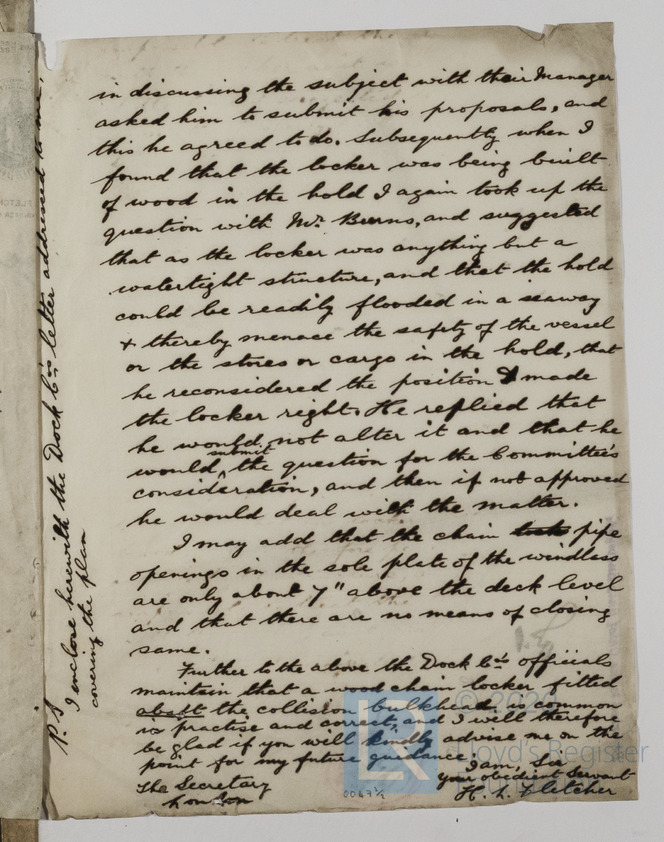 in discussing the subject with their Manager
asked him to submit his proposals, and
this he agreed to do. Subsequently when I
found that the locker was being built
of wood in the hold I again took up the
question with Mr. Burns, and suggested
that as the locker was anything but a
watertight structure, and that the hold
could be readily flooded in a seaway
& thereby menace the safety of the vessel
or the stores or cargo in the hold, that
he reconsidered the position & made
the locker right. He replied that
he would not alter it and that he
would submit the question for the Committee's
consideration, and then if not approved
he would deal with the matter.
I may add that the chain pipe
openings in the sole plate of the windlass
are only about 7" above the deck level
and that there are no means of closing
same.
Further to the above the Dock Co's officials
maintain that a wood chain locker fitted
abaft the collision bulkhead is common
practise and correct, and I will therefore
be glad if you will kindly advise me on the
point for my future guidance.
I am, Sir
your obedient Servant
H. L. Fletcher
The Secretary
London
P.S I enclose herewith the Dock Co's letter addressed to me,
covering the plan
© 2020
Lloyd's Register
0047½